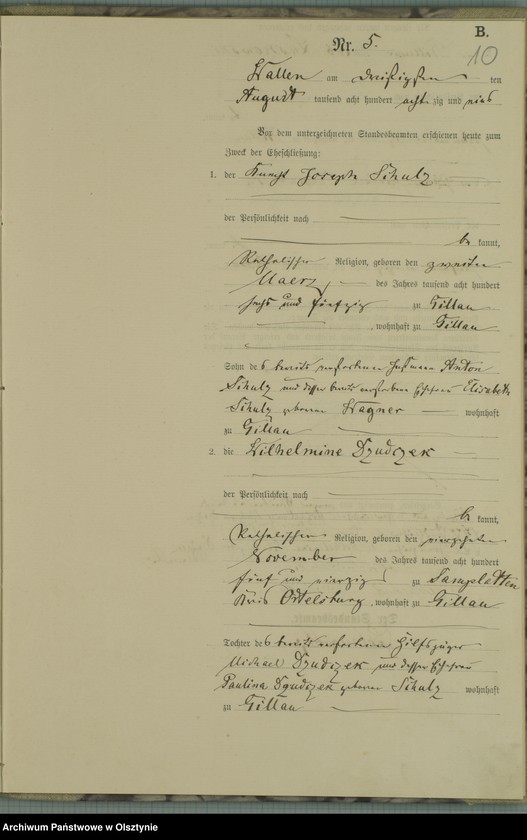 B.
10
Nr. 5.
Wallen am dreißigsten ten
August tausend acht hundert acht zig und eins
Vor dem unterzeichneten Standesbeamten erschienen heute zum
Zweck der Eheschließung:
1. der Knecht Joseph Schulz
der Persönlichkeit nach
be kannt,
Katholischer Religion, geboren den zweiten
Maerz, des Jahres tausend acht hundert
sechs und fünfzig zu Gillau
, wohnhaft zu Gillau
Sohn des bereits verstorbenen Anton
Schulz und dessen bereits verstorbene Ehefrau Elisabeth
Schulz geborene Wagner wohnhaft
zu Gillau
2. die Wilhelmine Dzudczek
der Persönlichkeit nach
be kannt,
Katholischen Religion, geboren den vierzehnten
November des Jahres tausend acht hundert
fünf und vierzig zu Samplatten
Kreis Ortelsburg, wohnhaft zu Gillau
Tochter des bereits verstorbenen Hilfsjäger
Michael Dzudczek und dessen Ehefrau
Paulina Dzudczek geborene Schulz wohnhaft
zu Gillau
Archiwum Państwowe w Olsztynie